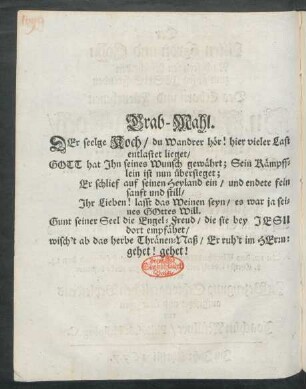 Grab-Mahl.
DEr seelge Koch / du Wandrer hör! hier vieler Last
entlastet lieget /
GOTT hat Ihn seines Wunsch gewährt; Sein Kämpff-
lein ist nun übersieget;
Er schlieff auf seinen Heyland ein / und endete fein
sanft und still /
Ihr Lieben! lasst das Weinen seyn / es war ja sei-
nes GOttes Will.
Gunt seiner Seel die Engel-Freud / die sie bey JESU
dort empfähet /
wischt ab das herbe Thränen-Naß / Er ruh't im HErrn:
gehet! gehet!